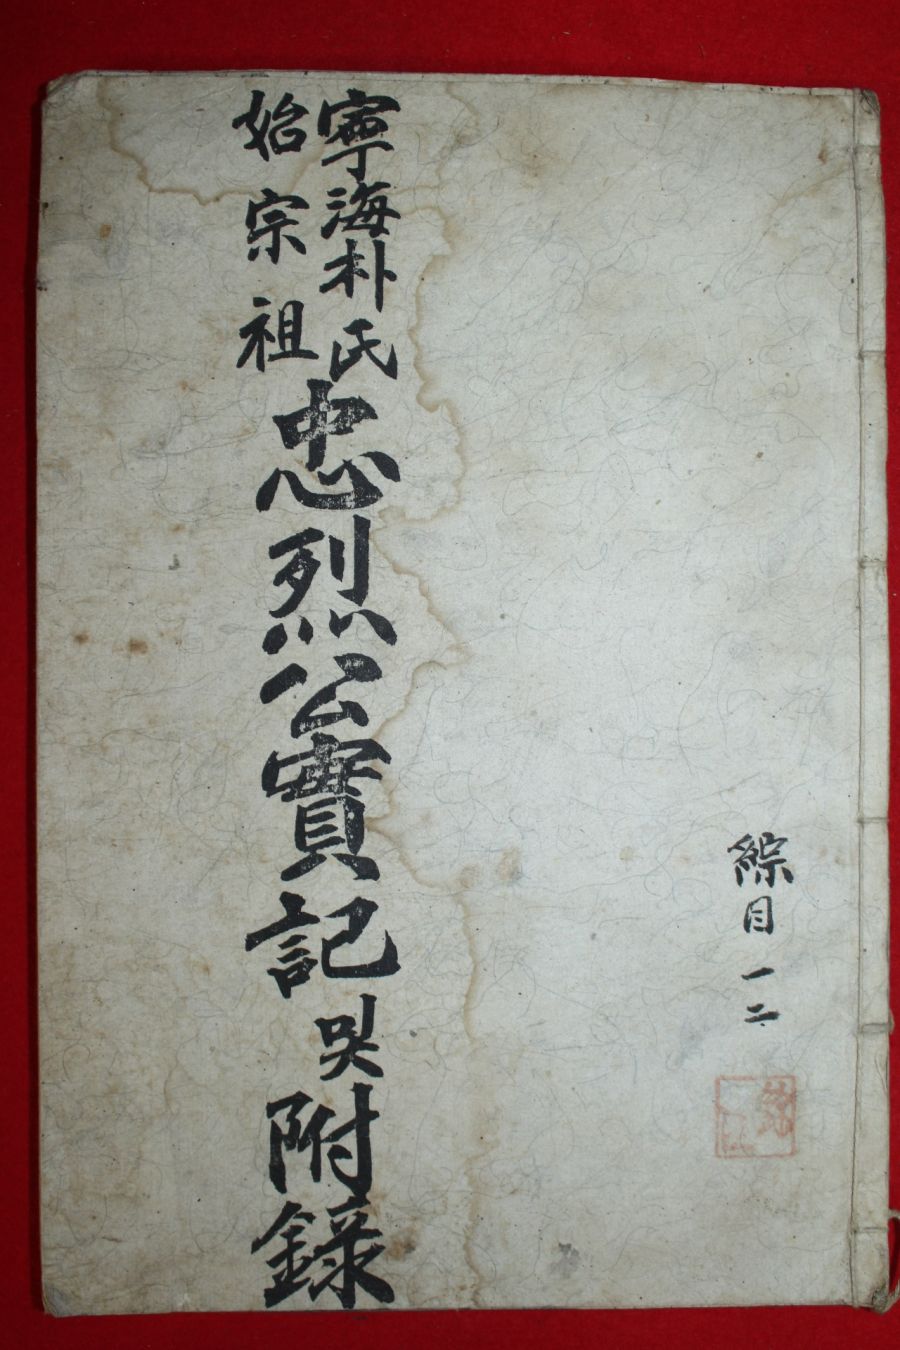 綜目 一 二
寧海朴氏
始宗祖
忠烈公實記 및 附錄